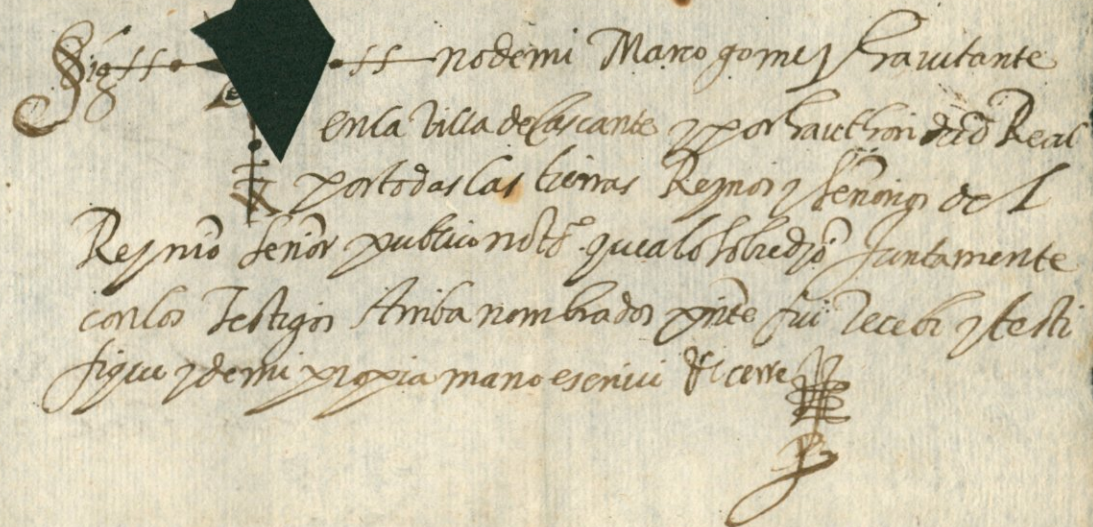 Sig ff ff no de mi Marco gomez havitante
en la Villa de Cascante y por hauthoridad Real
por todas las tierras Reynos y señorios del
Rey nro señor publico notº. que a lo sobredjo Juntamente
con los Testigos Arriba nombrados pnte fui Recebi y testi
fique y de mi propia mano escriui & cerre